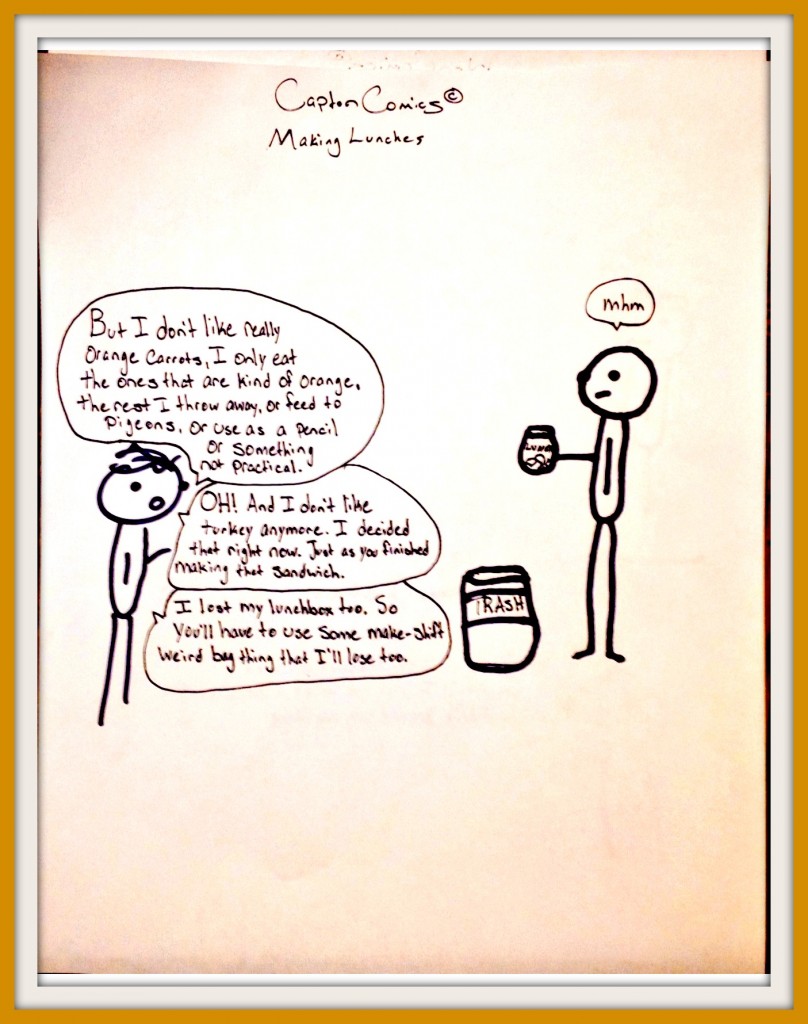 Capton Comics©
Making Lunches
mhm
But I don't like really
orange carrots, I only eat
the ones that are kind of orange,
the rest I throw away, or feed to
pigeons, or use as a pencil
or something
not practical.
OH! And I don't like
turkey anymore. I decided
that right now. Just as you finished
making that sandwich.
I lost my lunchbox too. So
you'll have to use some make-shift
weird bag thing that I'll lose too.
TRASH